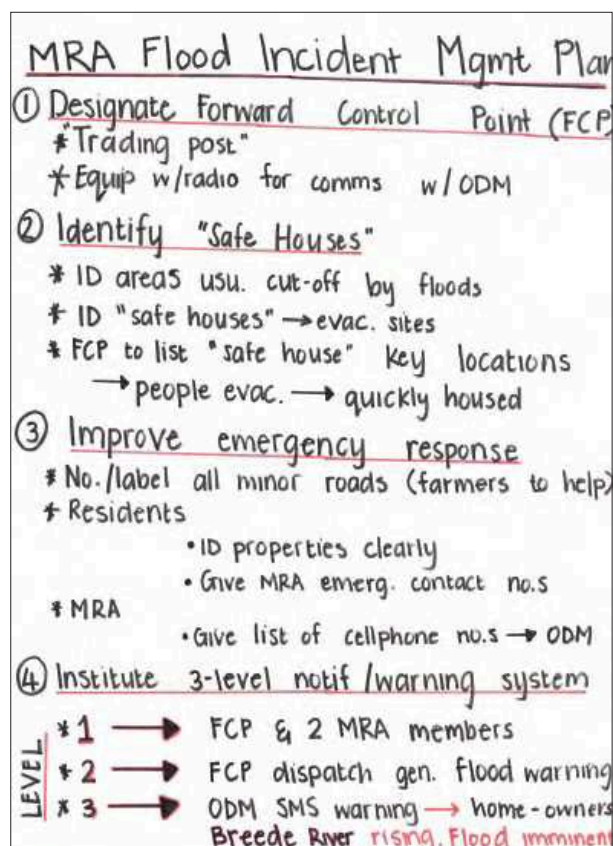 MRA Flood Incident Mgmt Plan
① Designate Forward Control Point (FCP)
* "Trading post"
* Equip w/radio for comms w/ODM
② Identify "Safe Houses"
* ID areas usu. cut-off by floods
* ID "safe houses" → evac. sites
* FCP to list "safe house" key locations
→ people evac. → quickly housed
③ Improve emergency response
* No./label all minor roads (farmers to help)
* Residents
• ID properties clearly
• Give MRA emerg. contact no.s
* MRA
• Give list of cellphone no.s → ODM
④ Institute 3-level notif/warning system
LEVEL
* 1 → FCP & 2 MRA members
* 2 → FCP dispatch gen. flood warning
* 3 → ODM SMS warning → home-owners
Breede River rising. Flood imminent